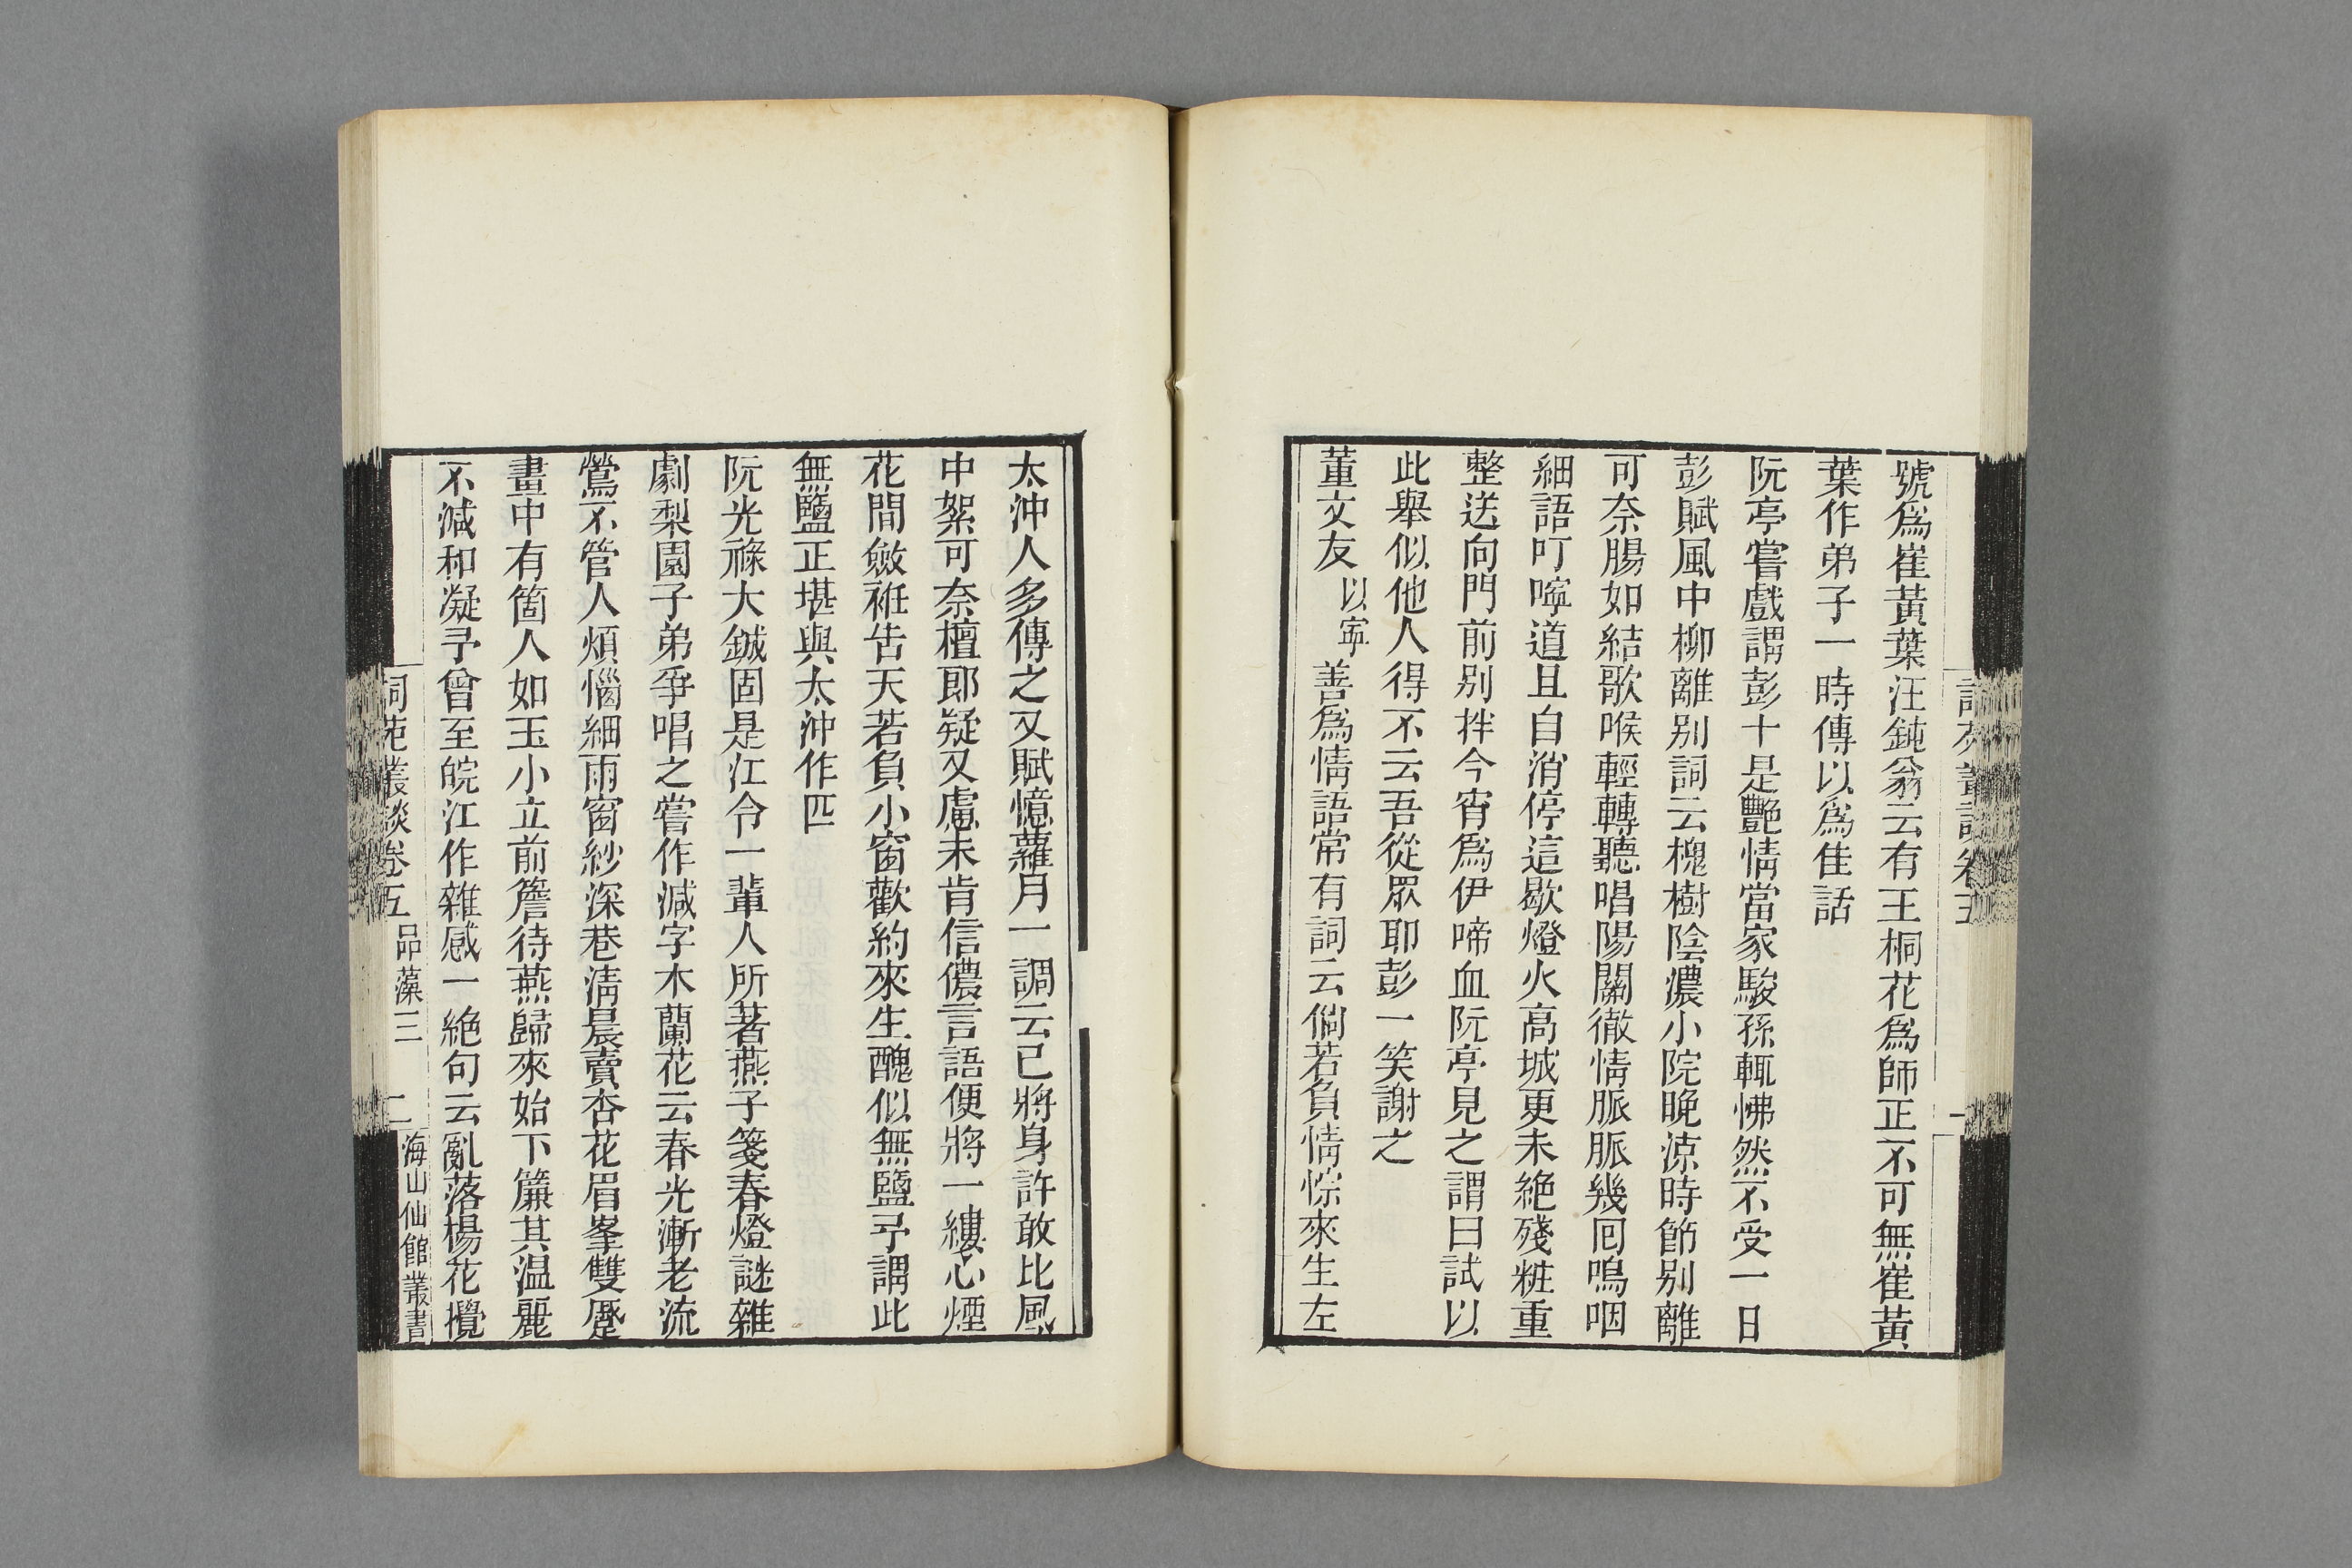 號爲崔黃葉汪鈍翁云有王桐花爲師正不可無崔黃
葉作弟子一時傳以爲佳話
阮亭嘗戲謂彭十是艷情當家駿孫輒怫然不受一日
彭賦風中柳離别詞云槐樹陰濃小院晚凉時節别離
可奈腸如結歌喉輕轉聽唱陽關徹情脈脈幾回嗚咽
細語叮嚀道且自消停這歇燈火高城更未絶殘粧重
整送向門前别拌今宵爲伊啼血阮亭見之謂曰試以
此舉似他人得不云吾從眾耶彭一笑謝之
董文友以寧善爲情語常有詞云倘若負情悰來生左
太沖人多傳之又賦憶蘿月一調云已將身許敢比風
中絮可奈檀郎疑又慮未肯信儂言語便將一縷心煙
花間斂衽告天若負小窗歡約來生醜似無鹽予謂此
無鹽正堪與太沖作匹
阮光祿大鋮固是江令一輩人所著燕子箋春燈謎雜
劇梨園子弟爭唱之嘗作減字木蘭花云春光漸老流
鶯不管人煩惱細雨窗紗深巷淸晨賣杏花眉峯雙蹙
畫中有箇人如玉小立前簷待燕歸來始下簾其温麗
不減和凝予曾至皖江作雜感一絶句云亂落楊花攪
詞苑叢談卷五 品藻三 二 海山仙館叢書